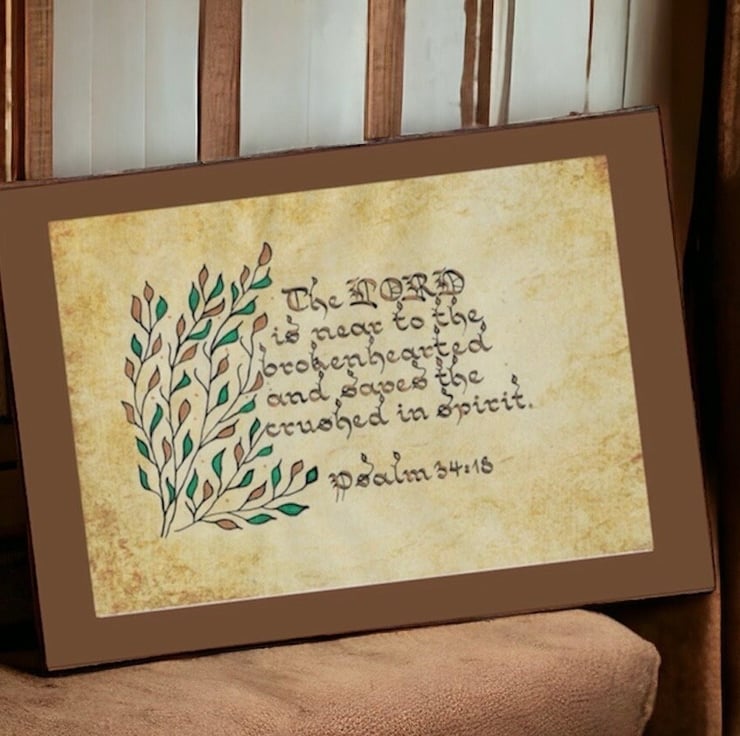 The LORD
is near to the
brokenhearted
and saves the
crushed in spirit.
Psalm 34:18